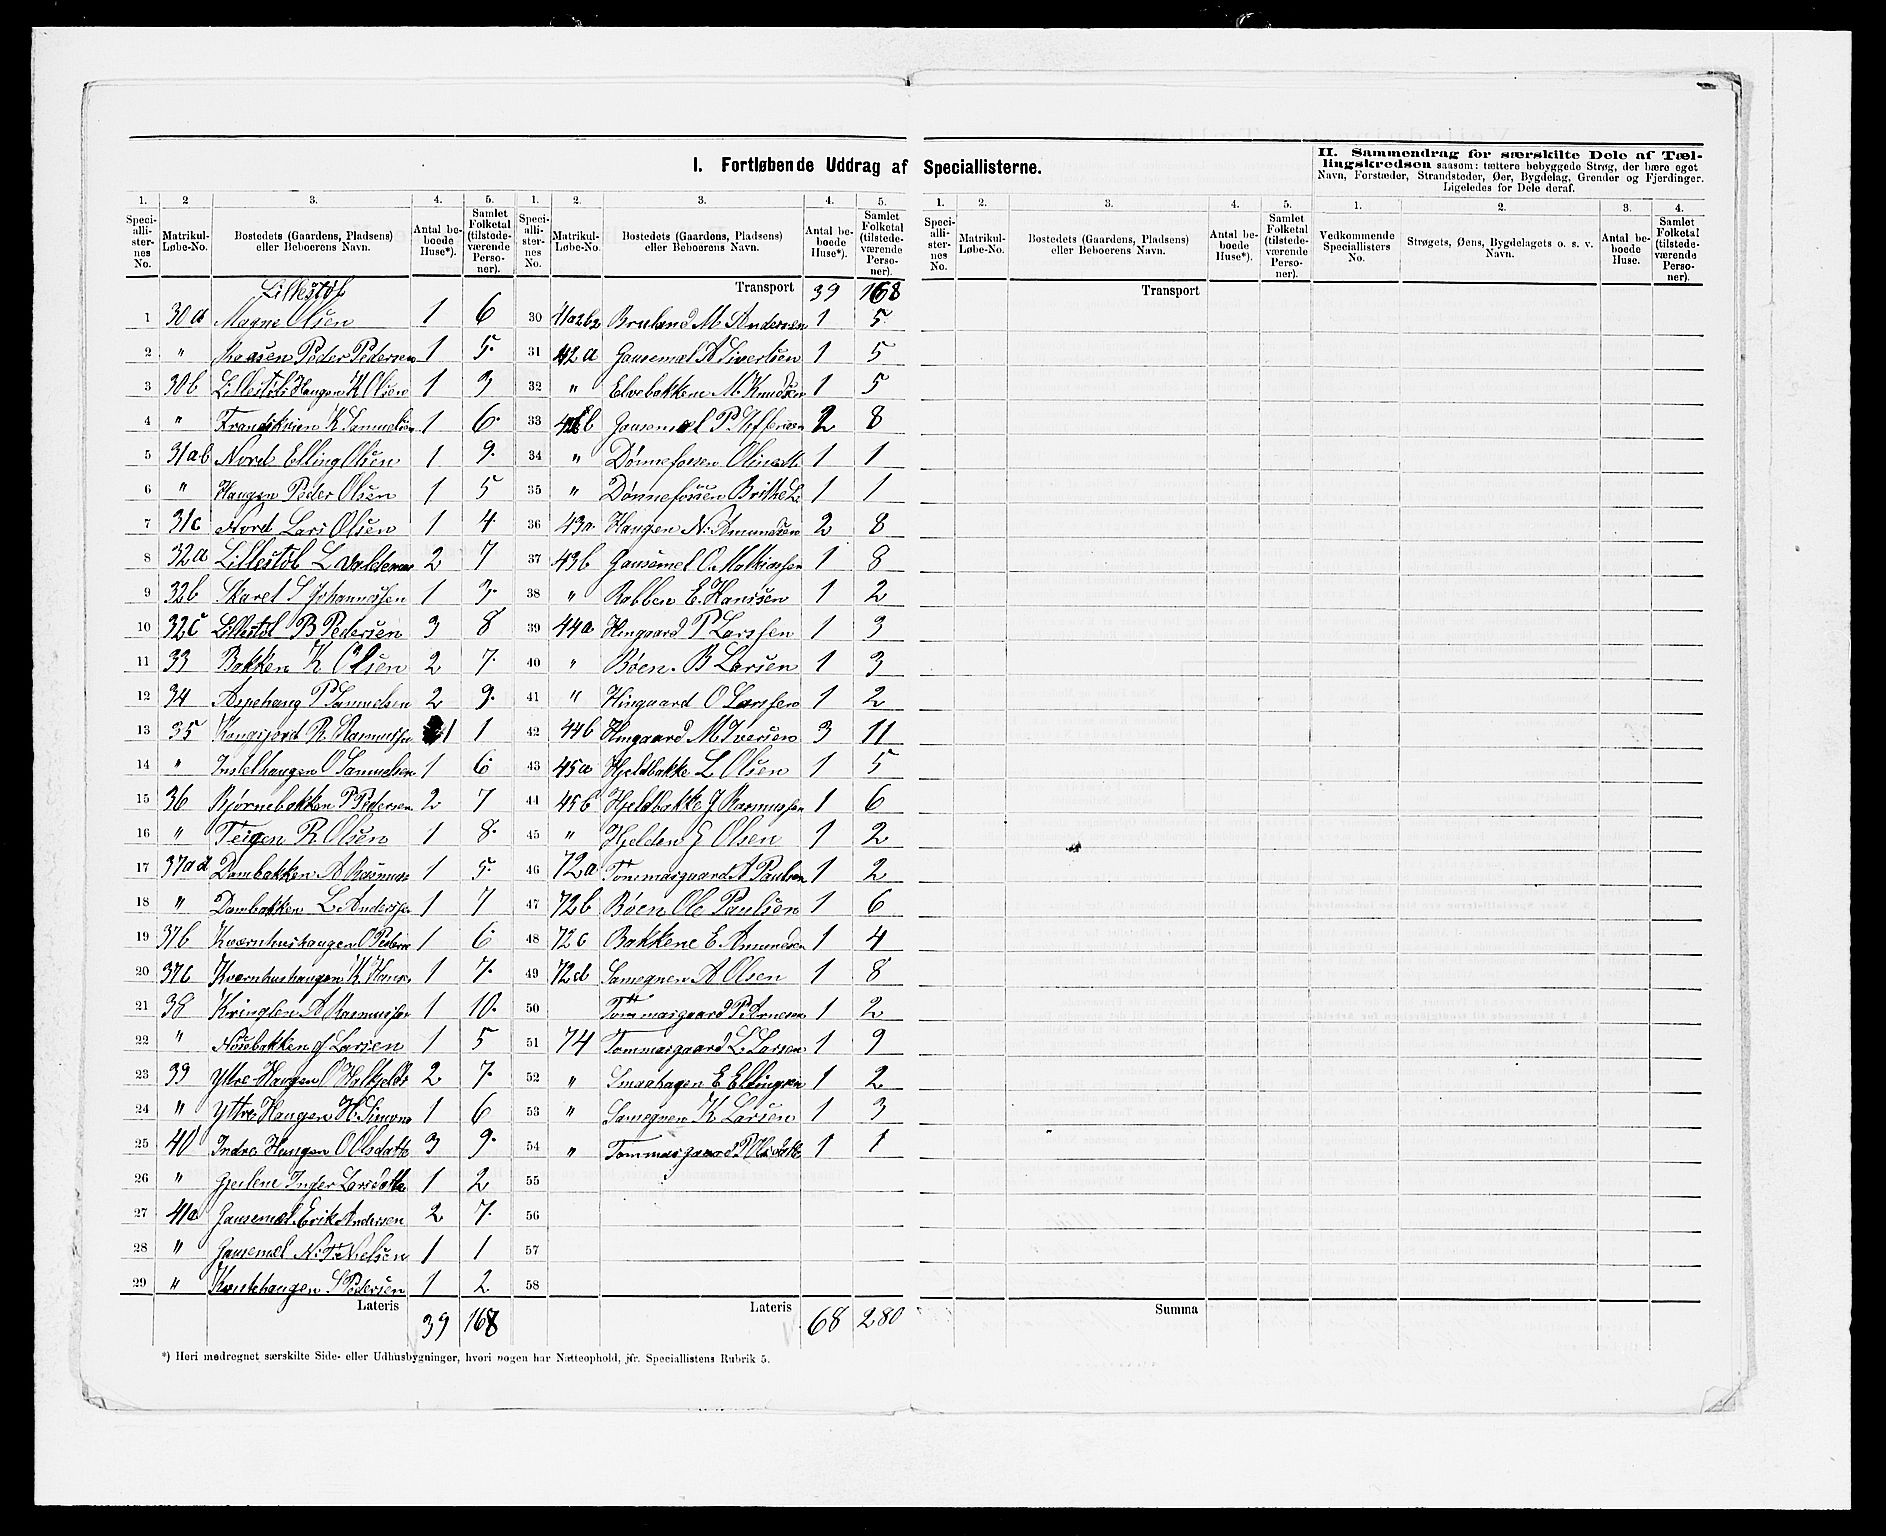 I. Fortløbende Uddrag af Speciallisterne.
II. Sammendrag for særskilte Dele af Tællingskredsen saasom: tættere bebyggede Strøg, der bære eget
Navn, Forstæder, Strandsteder, Øer, Bygdelag, Grender og Fjerdinger.
Ligeledes for Dele deraf.
1. 2 3. 4. 5. 1. 2. 3. 4. 5. 1. 2. 3. 4. 5. 1. 2. 3. 4.
Speciallisternes No. Matrikul-Løbe-No. Bostedets (Gaardens, Pladsens) eller Beboerens Navn. Antal beboede Huse*). Samlet Folketal (tilstedeværende Personer).
Speciallisternes No. Matrikul-Løbe-No. Bostedets (Gaardens, Pladsens) eller Beboerens Navn. Antal beboede Huse*). Samlet Folketal (tilstedeværende Personer).
Speciallisternes No. Matrikul-Løbe-No. Bostedets (Gaardens, Pladsens) eller Beboerens Navn. Antal beboede Huse*). Samlet Folketal (tilstedeværende Personer).
Vedkommende Speciallisters No. Strøgets, Øens, Bygdelagets o. s. v. Navn. Antal beboede Huse. Samlet Folketal (tilstedeværende Personer).
Lillestøl
1 30a Magne Olsen 1 6
2 " Peder Pedersen 1 5
3 30b Lillestøls Haugen K Olsen 1 3
4 " K Samuelsen 1 6
5 31ab Nord Elling Olsen 1 9
6 " Haugen Peder Olsen 1 5
7 31c Nord Lars Olsen 1 4
8 32a Lillestøl L 2 7
9 32b Skaret S Johannessen 1 3
10 32c Lillestøl B Pedersen 3 8
11 33 Bakken K Olsen 2 7
12 34 Aspehaug P Samuelsen 2 9
13 35 Kongsjord R. Rasmussen 1 1
14 " O Samuelsen 1 6
15 36 Bjørnebakken P Pedersen 2 7
16 " Teigen R. Olsen 1 8
17 37ad Dambakken A Rasmus 1 5
18 " Dambakken L. Anderssen 1 7
19 37b Kværnhushaugen O 1 6
20 37c Kværnhushaugen K Hans 1 7
21 38 Kringlen A Rasmussen 1 10
22 " Nøsebakken J Larsen 1 5
23 39 Yttre-Haugen O 2 7
24 " Yttre Haugen H. Simons 1 6
25 40 Indre Haugen O Olsdatte 3 9
26 " Gjeilene Inger Larsdatte 1 2
27 41a Gausemel Erik Andersen 2 7
28 " Gausemel N. T. Nielsen 1 1
29 " S Pedersen 1 2
Lateris 39 168
Transport 39 168
30 41a2b2 Bruland M Andersen 1 5
31 42a Gausemel A Sivertsen 1 5
32 " Elvebakken M. Knudsen 1 5
33 42b Gausemel P. 2 8
34 " Dønnefossen Oline M. 1 1
35 " Dønnefossen Brithe L. 1 1
36 43a Haugen N. Amundsen 2 8
37 43b Gausemel O. Mathiassen 1 8
38 " Rabben E. Hanssen 1 2
39 44a Hingaard P Larssen 1 3
40 " Bøen. B Larsen 1 3
41 " Hingaard O Larssen 1 2
42 44b Hingaard M Iversen 3 11
43 45a Hjeldbakke L Olsen 1 5
44 45b Hjeldbakke J Rasmussen 1 6
45 " Hjelden J Olsen 1 2
46 72a Tommasgaard A Paulsen 1 2
47 72b Bøen Ole Paulsen 1 6
48 72c Bakkene E. Amundsen 1 4
49 72d Samegnen A Olsen 1 8
50 Tommasgaard P. Arnesen 1 2
51 74 Tommasgaard L. Larsen 1 9
52 " Smaahagen E Ellingsen 1 2
53 " Samegnen K Larsen 1 3
54 " Tommasgaard P Olsdatte 1 1
55
56
57
58
Lateris 68 280
Transport
Summa
*) Heri medregnet særskilte Side- eller Udhusbygninger, hvori nogen har Natteophold, jfr. Speciallistens Rubrik 5.